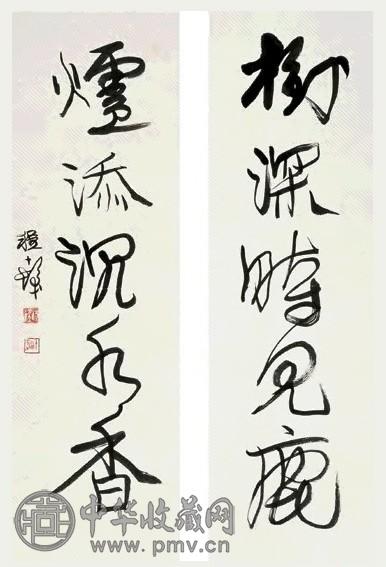 樹深時見鹿
爐添沉水香
中华收藏网
www.pmv.cn